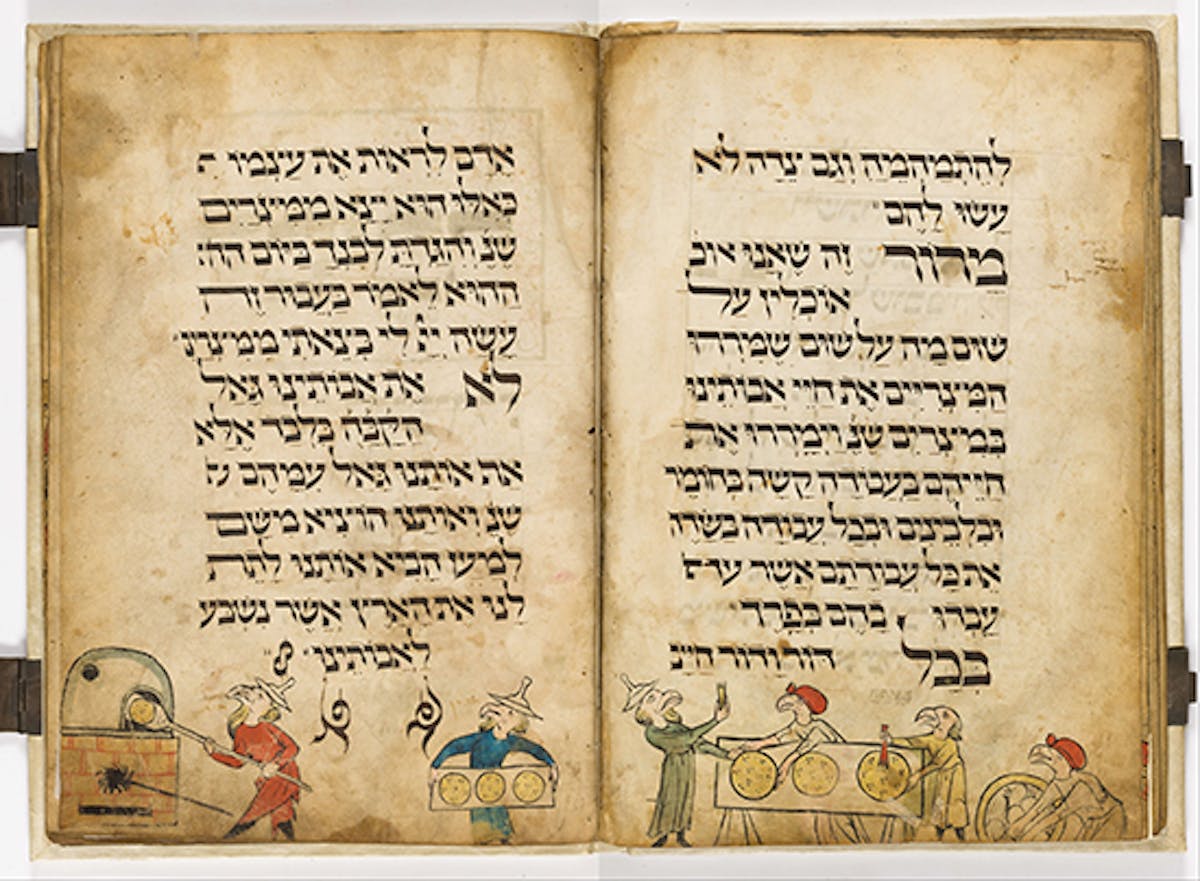 להתמהמה וגם צדה לא
עשו להם
מרור זה שאנו אוכ
אוכלין על
שום מה על שום שמררו
המצריים את חיי אבותינו
במצרים שנ' וימררו את
חייהם בעבודה קשה בחומר
ובלבינים ובכל עבודה בשדה
את כל עבודתם אשר
עבדו בהם בפרך
בכל דור ודור חייב
אדם לראות את עצמו
כאלו הוא יצא ממצרים
שנ' והגדת לבנך ביום הה
ההוא לאמר בעבור זה
עשה יי לי בצאתי ממצרים
לא את אבותינו גאל
הקבה בלבד אלא
את אותנו גאל עמהם
שנ' ואותנו הוציא משם
למען הביא אותנו לתת
לנו את הארץ אשר נשבע
לאבותינו